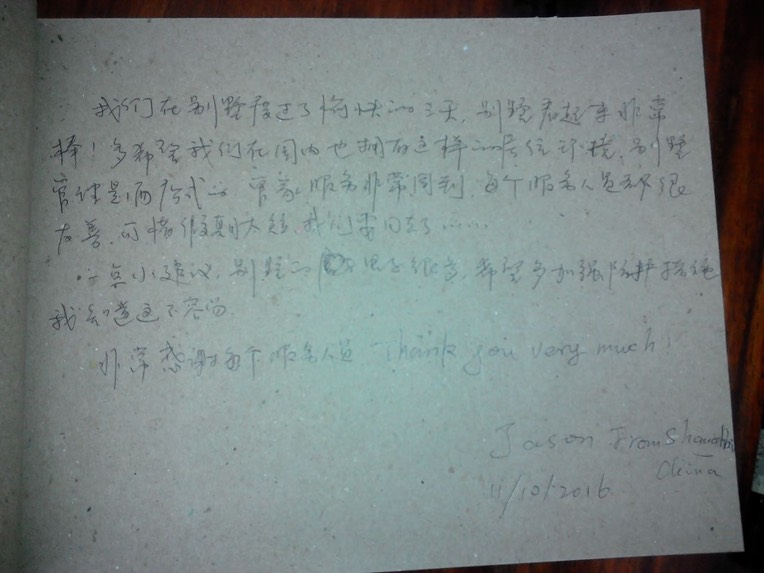 我们在别墅度过了愉快的三天，别墅看起来非常
棒！多希望我们在国内也拥有这样的居住环境，别墅
管理是酒店式的管家，服务非常周到，每个服务人员都很
友善，可惜假期太短，我们要回去了……
一点小建议，别墅的 很多，希望多加强防护措施
我知道这不容易
非常感谢每个服务人员 Thank you very much!
Jason From Shanghai
China
11/10/2016